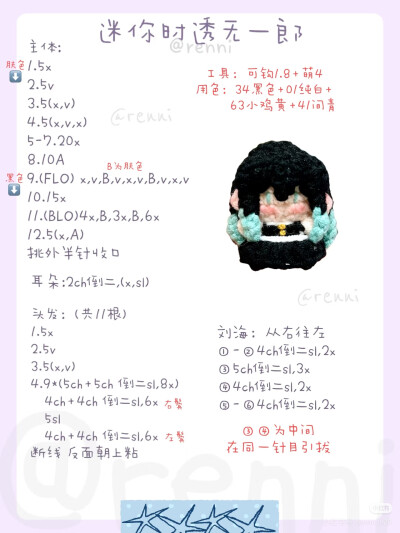 迷你时透无一郎
@renni
主体:
肤色
1.5x
2.5v
3.5(x,v)
4.5(x,v,x)
5-7.20x
8.10A
B为肤色
黑色
9.(FLO) x,v,B,v,x,v,B,v,x,v
10.15x
11.(BLO)4x,B,3x,B,6x
12.5(x,A)
挑外半针收口
耳朵:2ch倒二,(x,sl)
工具: 可钩1.8+萌4
用色: 34黑色+01纯白+
63小鸡黄+41间青
@renni
@renni
头发: (共11根)
1.5x
2.5v
3.5(x,v)
4.9*(5ch+5ch 倒二sl,8x)
4ch+4ch 倒二sl,6x 右鬓
5sl
4ch+4ch 倒二sl,6x 左鬓
断线 反面朝上粘
刘海: 从右往左
①-②4ch倒二sl,2x
③5ch倒二sl,3x
④4ch倒二sl,2x
⑤-⑥4ch倒二sl,2x
③④为中间
在同一针目引拔
@renni